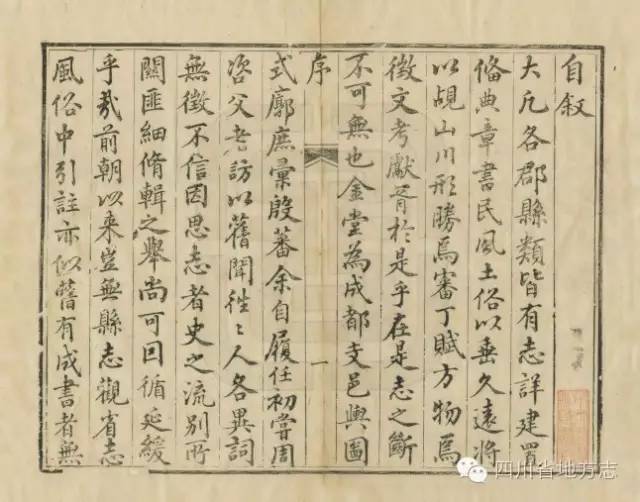 自叙
大凡各郡縣類皆有志詳建置
俻典章書民風土俗以垂久遠將
以覘山川形勝焉審丁賦方物焉
徵文考獻胥於是乎在是志之斷
不可無也金堂為成都支邑輿圖
序 一
式廓庶彙殷蕃余自履任初嘗周
咨父老訪以舊聞徃〻人各異詞
無徵不信因思志者史之流別所
關匪細脩輯之舉尚可囙循延緩
乎哉前朝以来豈無縣志觀省志
風俗中引註亦似舊有成書者無
四川省地方志